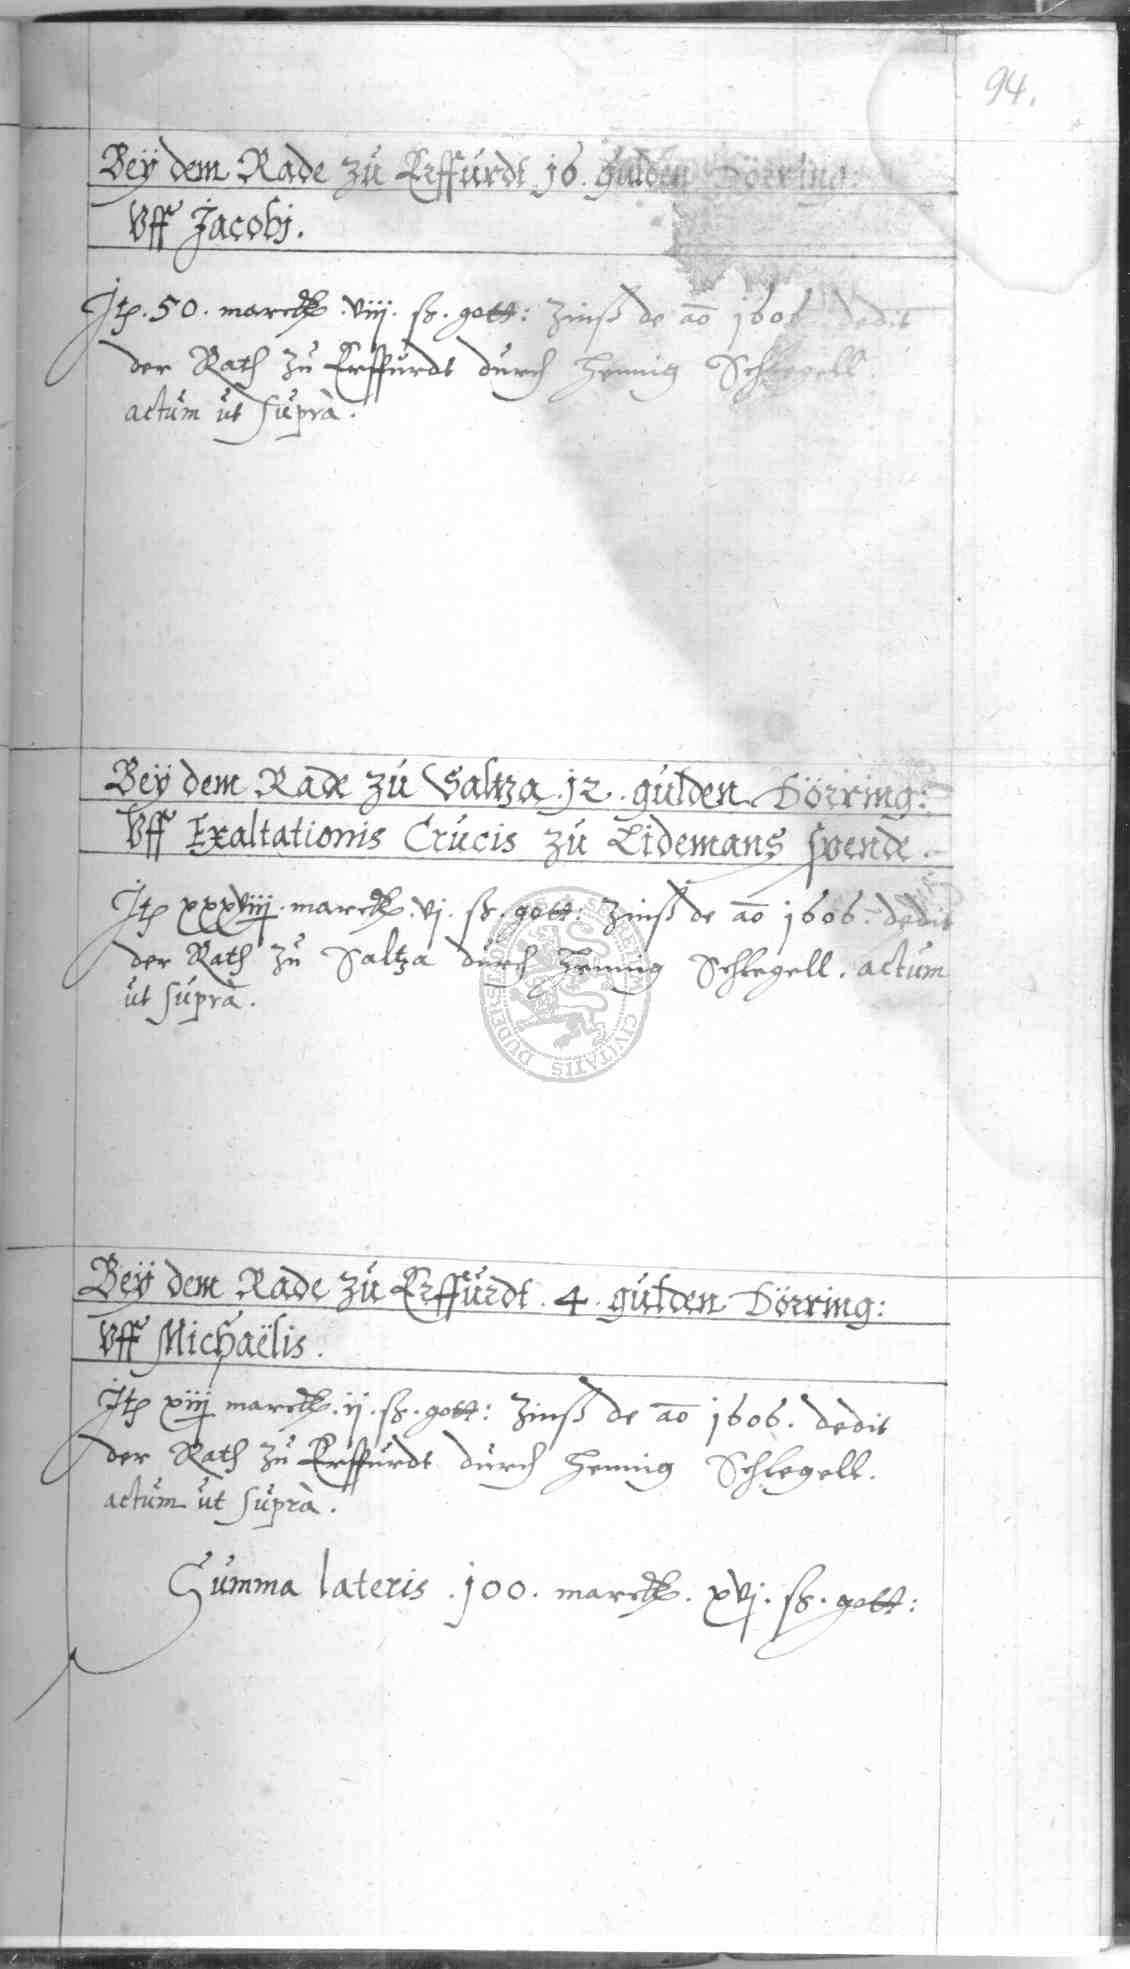 94.
Beÿ dem Rade zú Erffúrdt 16. gúlden Dörring:
Vff Jacobj.
Itp. 50. marck .viij. ß. gott: Zinß de ao 1606 dedit
der Rath zú Erffúrdt dúrch Hennig Schlegell.
actúm út súprà.
Beÿ dem Rade zú Saltza .12. gúlden Dörring:
Vff Exaltationis Crúcis zú Lidemans spende.
Itp xxxviij. marck .vj. ß. gott: Zinß de ao 1606. dedit
der Rath zú Saltza dúrch Hennig Schlegell. actúm
út súprà.
SECRETUM CIVITATIS DUDERSTADENSIS
Beÿ dem Rade zú Erffúrdt .4. gúlden Dörring:
Vff Michaëlis.
Itp xiij marck .ij. ß. gott: Zinß de ao 1606. dedit
der Rath zú Erffúrdt dúrch Hennig Schlegell.
actúm út súprà.
Súmma lateris .100. marck. xvj. ß. gott: